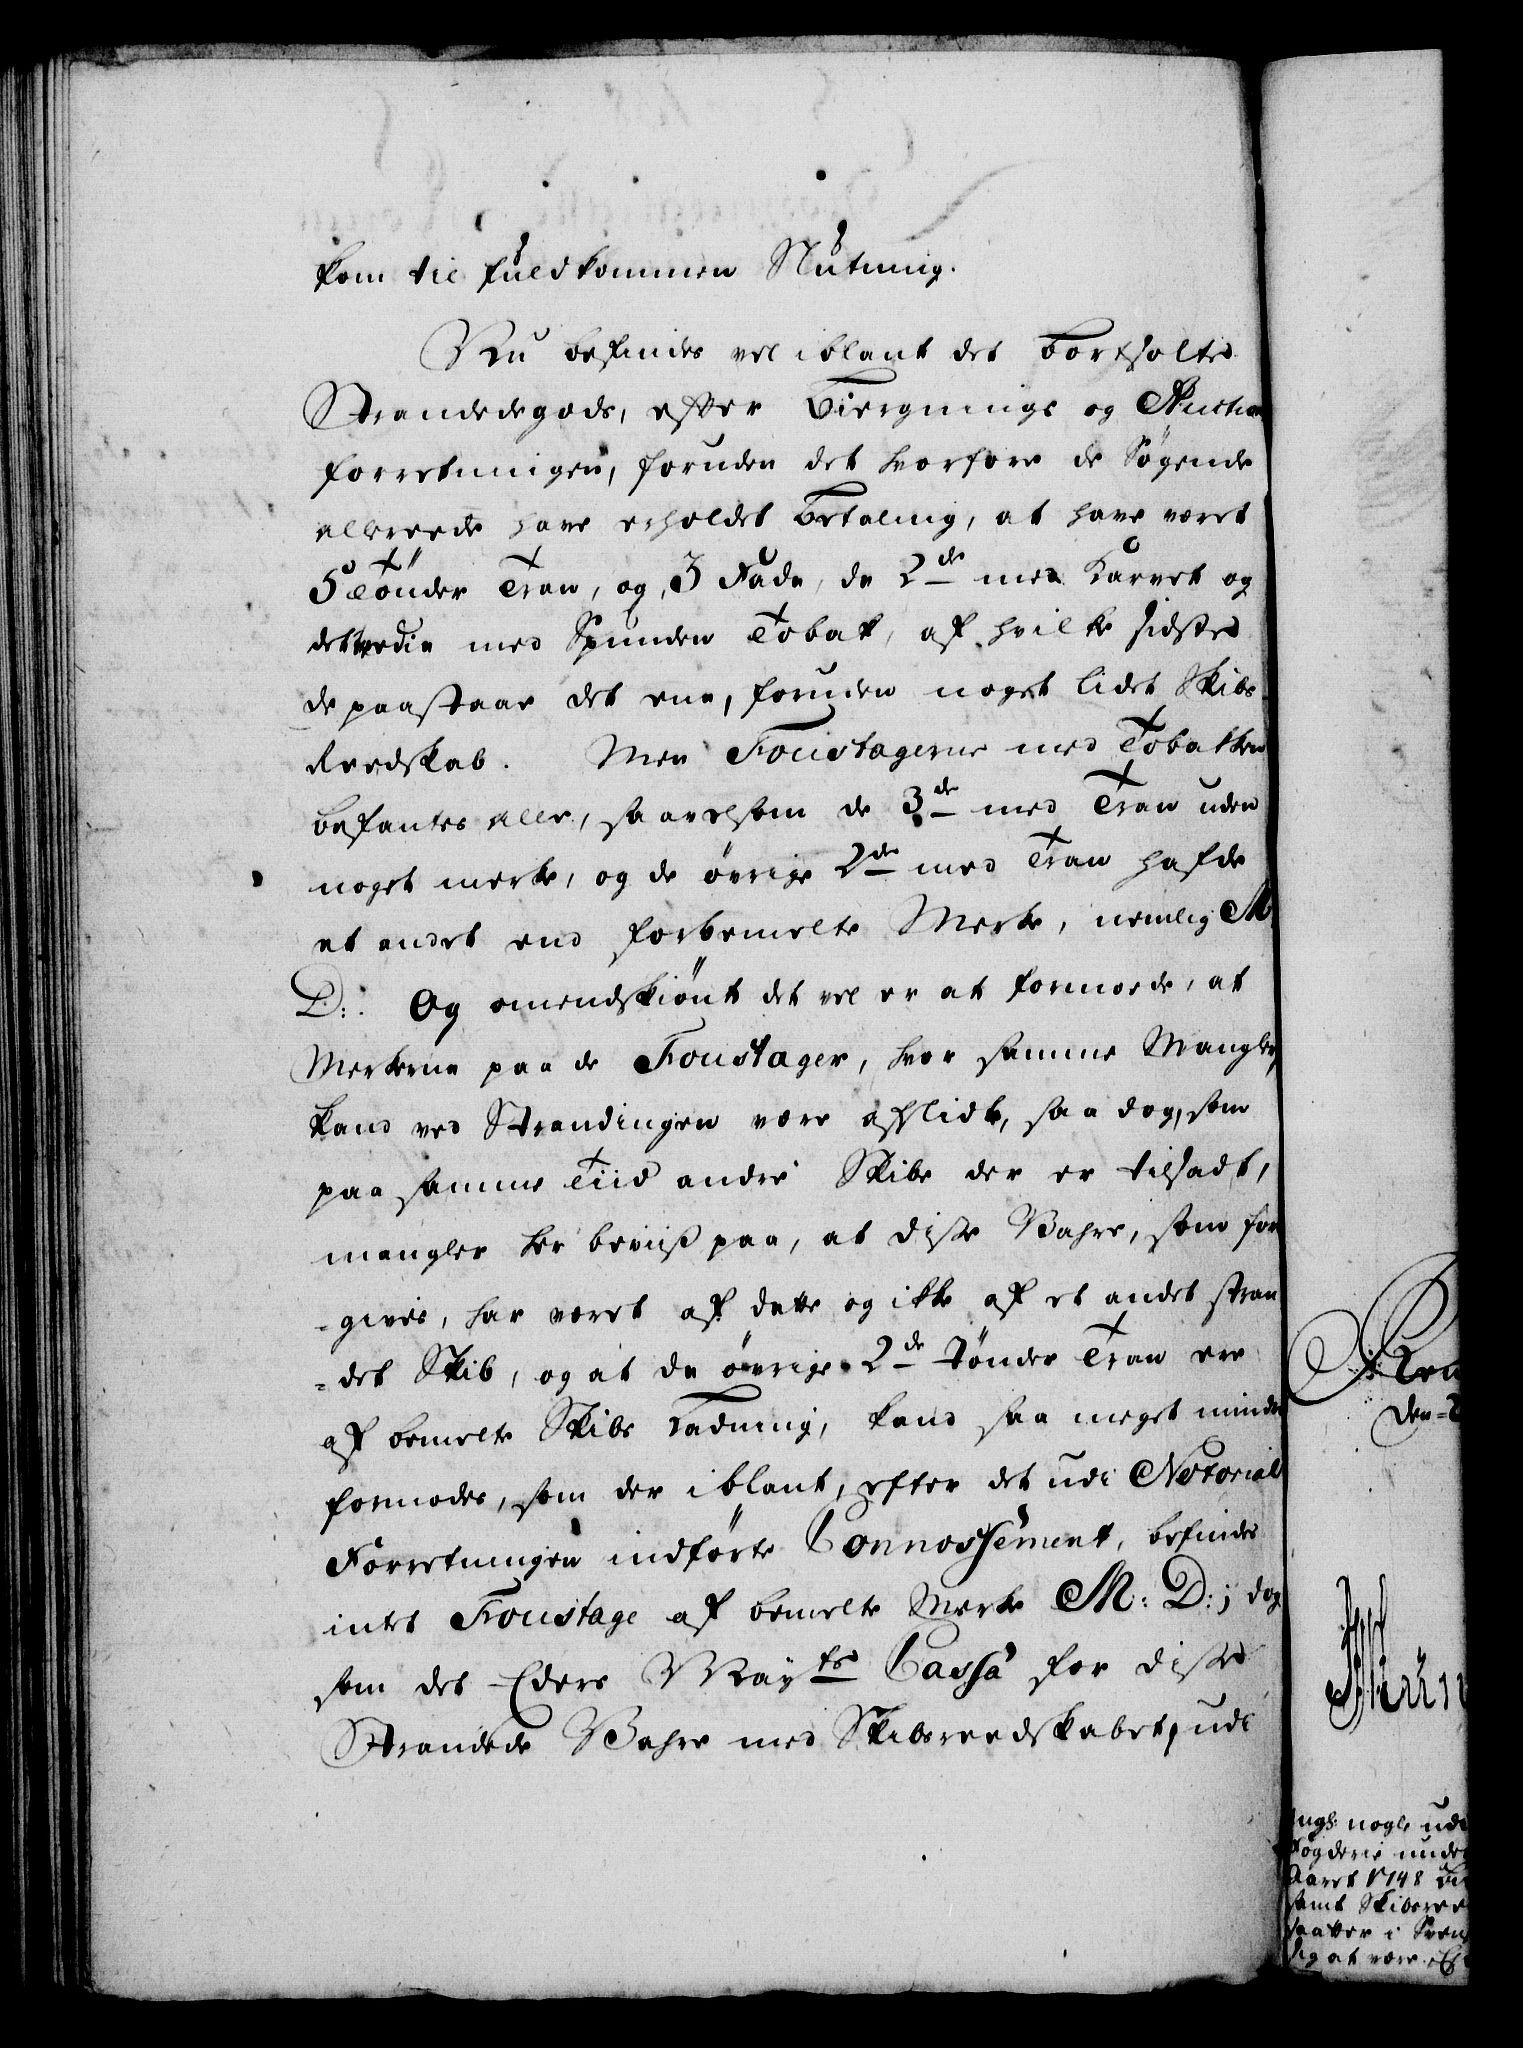 kom til fuldkommen Nutning.
Nu befindes vel iblant det bortsolte
Strandedegods, efter Biergnings og Auctions
forretningen, foruden det hvorfore de Søgende
allereede have erholdet Betaling, at have været
5 Tønder Tran, og 3 Fade, de 2de med Karvet og
det tredie med Spunden Tobak, af hvilke sidste
de paastaar det ene, foruden noget lidet Skibs
Reedskab. Men Foustagerne med Tobakken
befantes alle, saavelsom de 3de med Tran uden
noget merke, og de øvrige 2de med Tran hafde
et andet end forbemelte Merke, nemlig M
D:. Og omendskiønt det vel er at formode, at
Merkerne paa de Foustager, hvor samme Mangler,
kand ved Strandingen være afslidt, saa dog, som
paa samme Tiid andre Skibe der er tilsadt,
mangler her beviiß paa, at disse Vahre, som for
-gives, har været af dette og ikke af et andet stran
-det Skib, og at de øvrige 2de Tønder Tran ere
af bemelte Skibs Ladning, kand saa meget mindre
formodes, som der iblant, efter det udi Notorial
Forretningen indførte Connossement, befindes
intet Foustage af bemelte Merke M: D:; dog
som det Eders Mayts Cassa for disse
Strandede Vahre med Skibsreedskabet, udi
den
nogle udi
Fogderie under
Aaret 1748
samt Skibsree
saatter i
sig at være